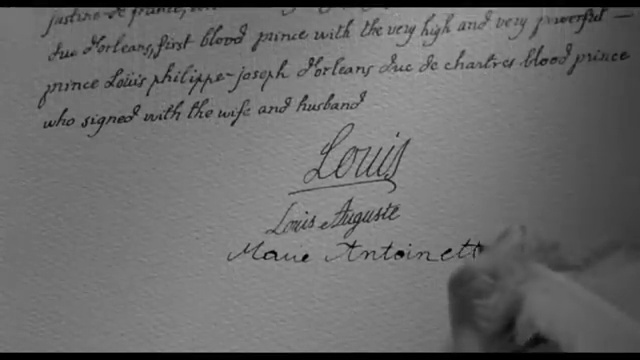 justine de france,
duc d'orleans, first blood prince with the very high and very powerful
prince Louis philippe-joseph d'orleans duc de chartres blood prince
who signed with the wife and husband
Louis
Louis Auguste
Marie Antoinett